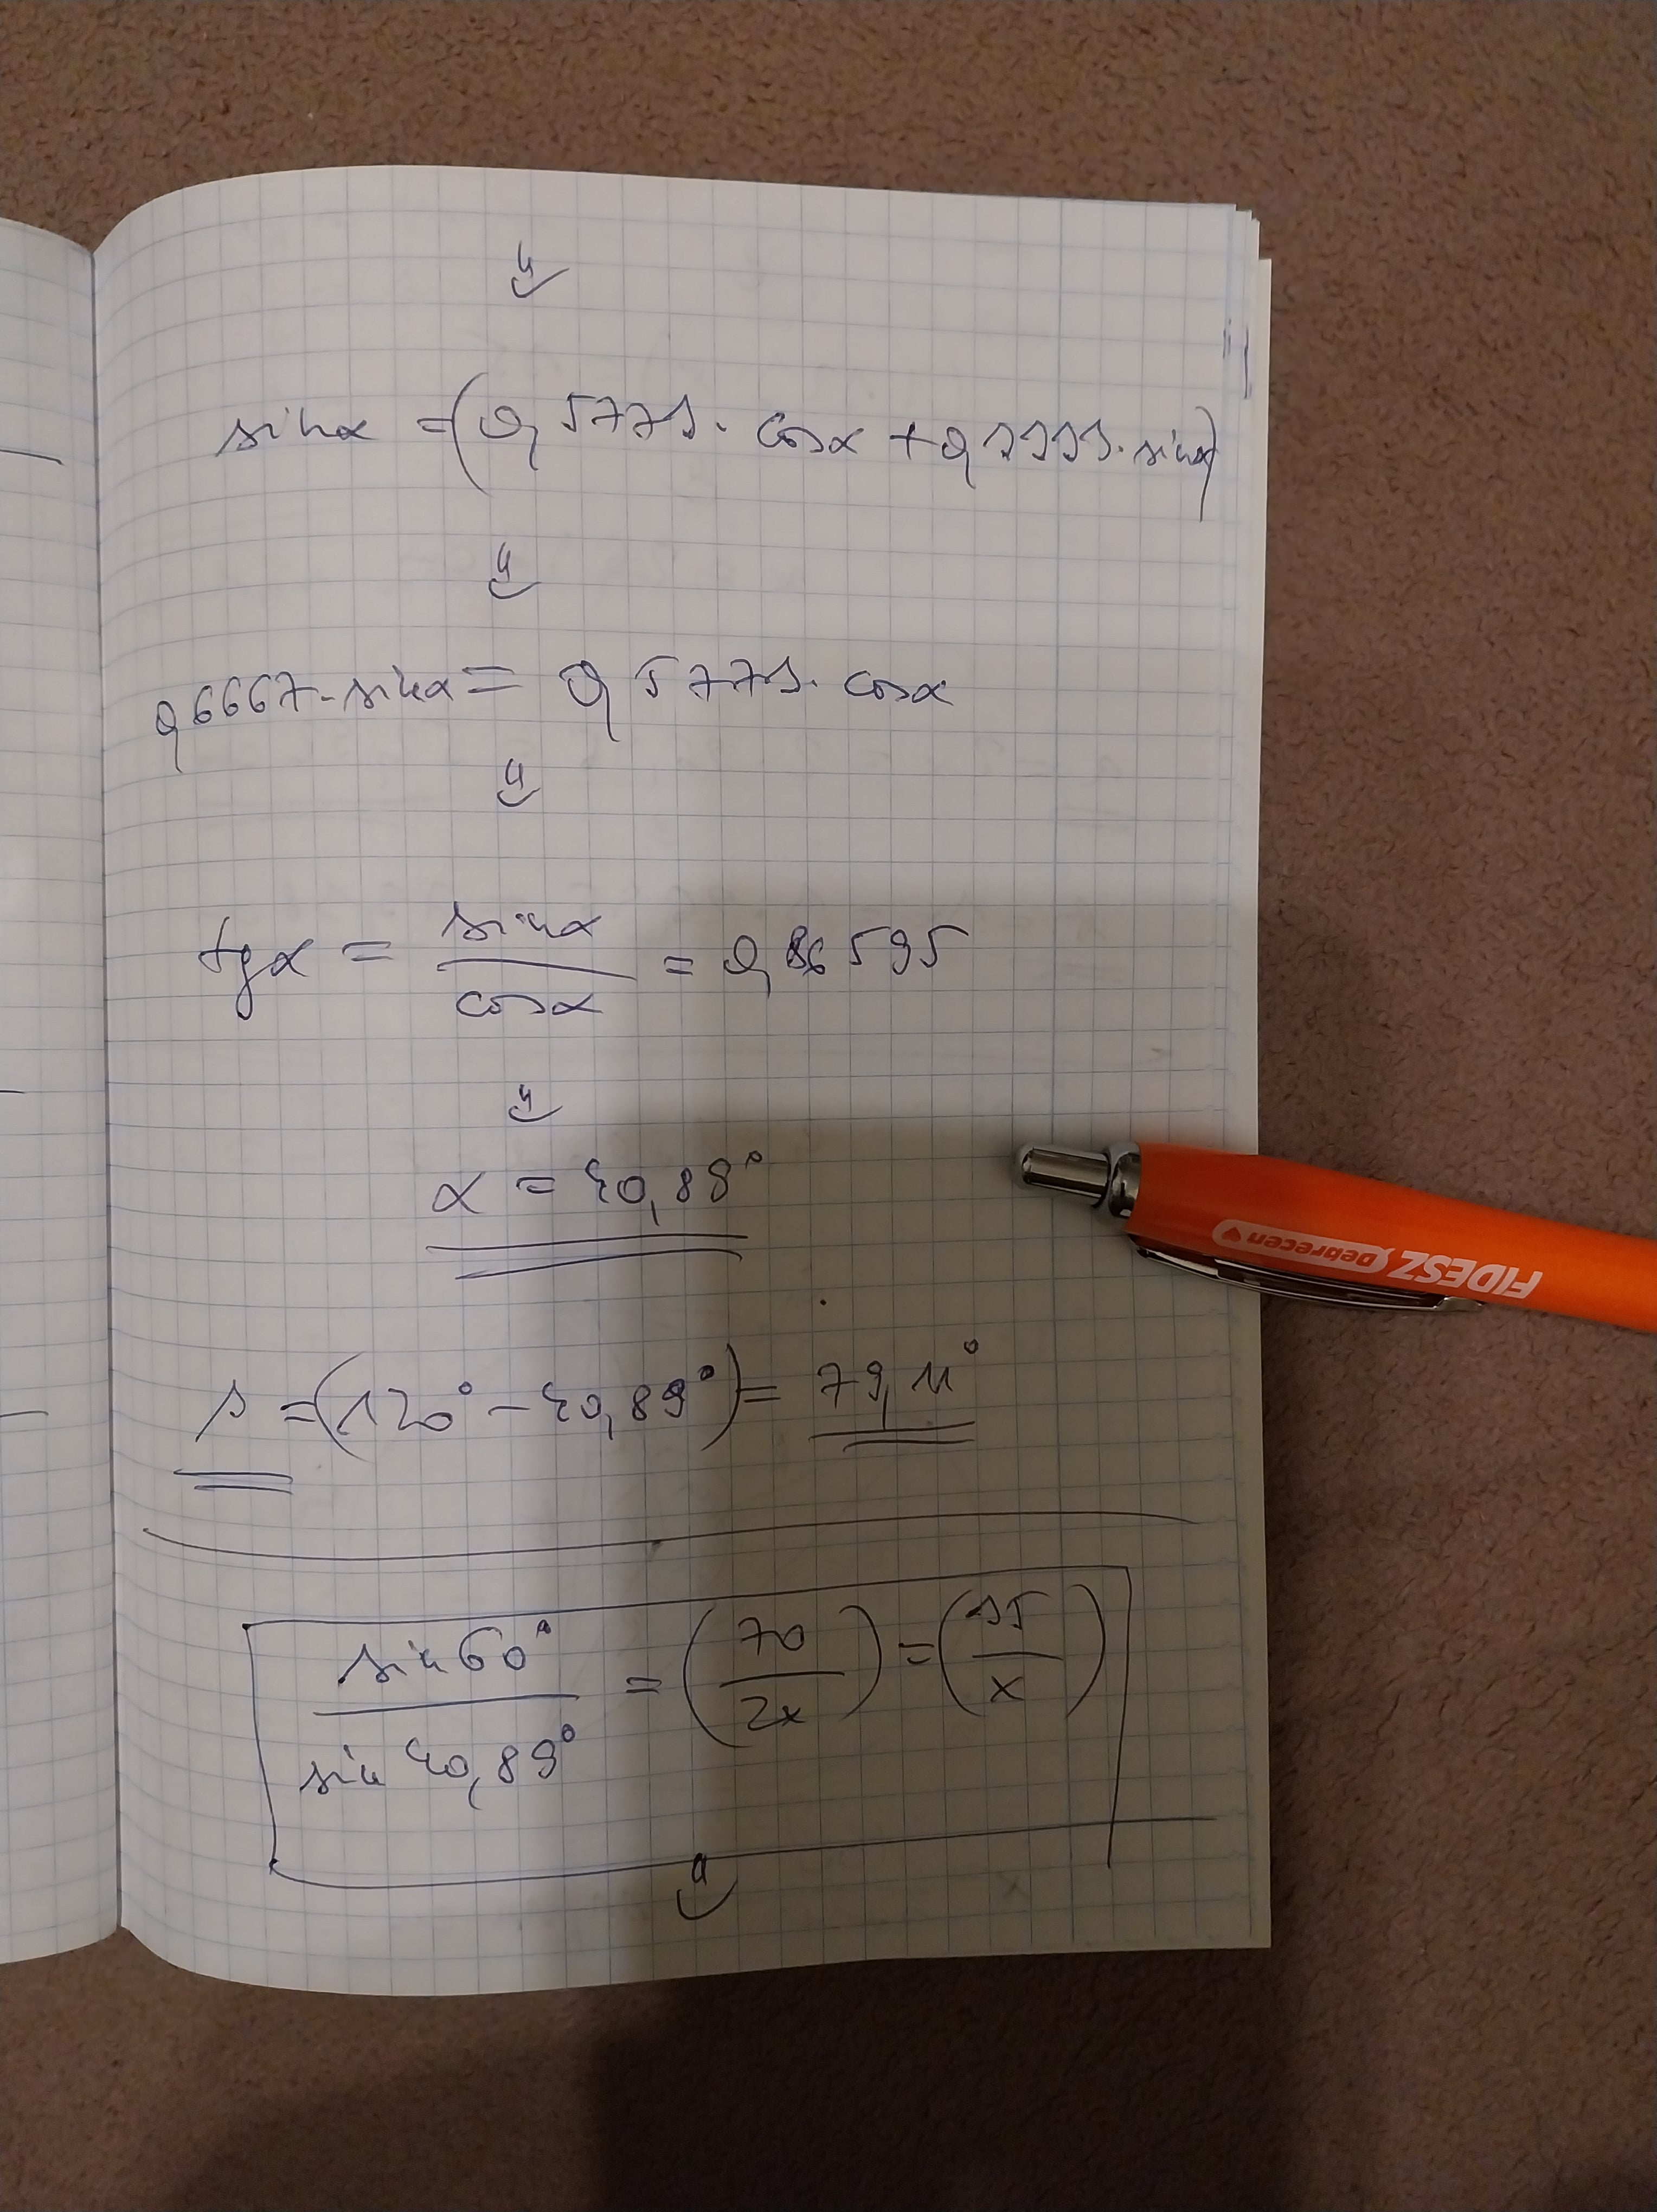 sinα = (0,5773 · cosα + 0,3333 · sinα)
0,6667 · sinα = 0,5773 · cosα
tgα = sinα / cosα = 0,86595
α = 40,89°
β = (120° - 40,89°) = 79,11°
sin 60° / sin 40,89° = (70 / 2x) = (35 / x)
FIDESZ Debrecen